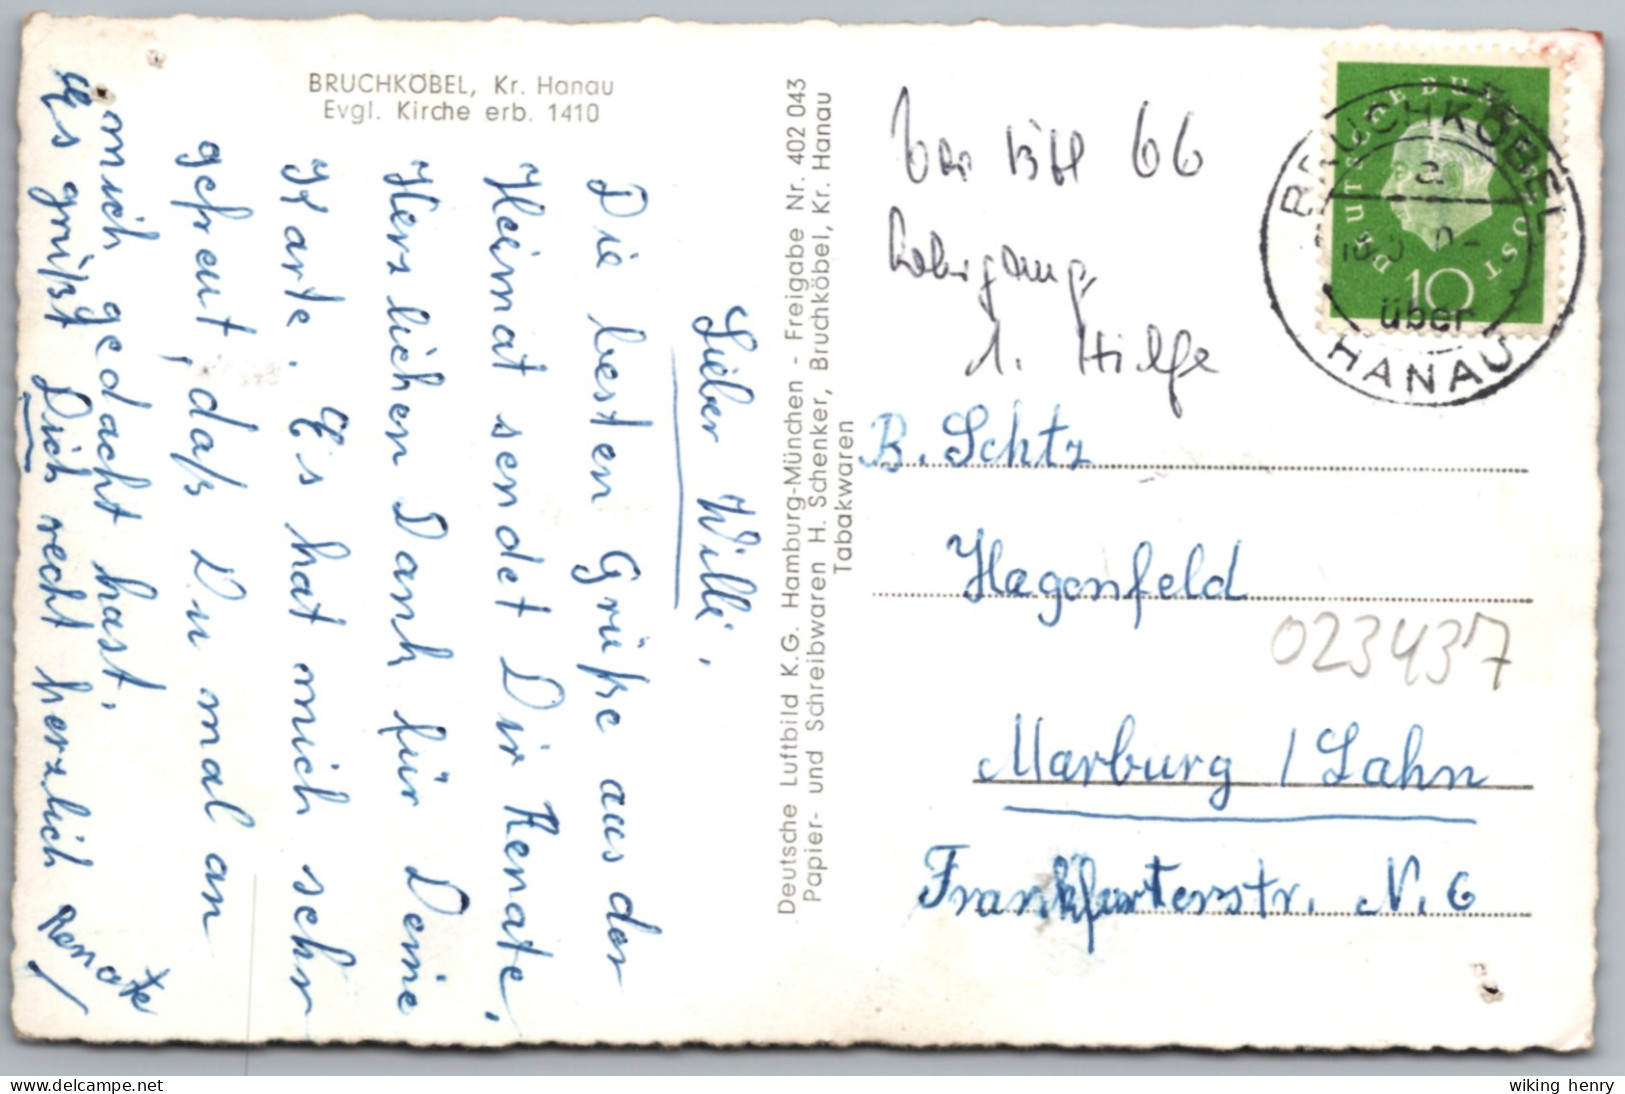 BRUCHKÖBEL, Kr. Hanau
Evgl. Kirche erb. 1410
Lieber Willi,
Die besten Grüße aus der
Heimat sendet Dir Renate,
Herzlichen Dank für Deine
Karte. Es hat mich sehr
gefreut, daß Du mal an
mich gedacht hast.
Es grüßt Dich recht herzlich Renate
Deutsche Luftbild K.G. Hamburg-München - Freigabe Nr. 402 043
Papier- und Schreibwaren H. Schenker, Bruchköbel, Kr. Hanau
Tabakwaren
66
1. Hilfe
DEUTSCHE BUNDESPOST
10
BRUCHKÖBEL
a
über
HANAU
B. Schtz
Hagenfeld
023437
Marburg / Lahn
Frankfurterstr. N. 6
wiking henry
www.delcampe.net